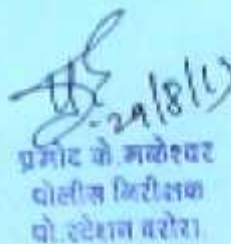 29/8/17
प्रमोद के. मळेश्वर
पोलीस निरीक्षक
पो. स्टेशन वरोरा